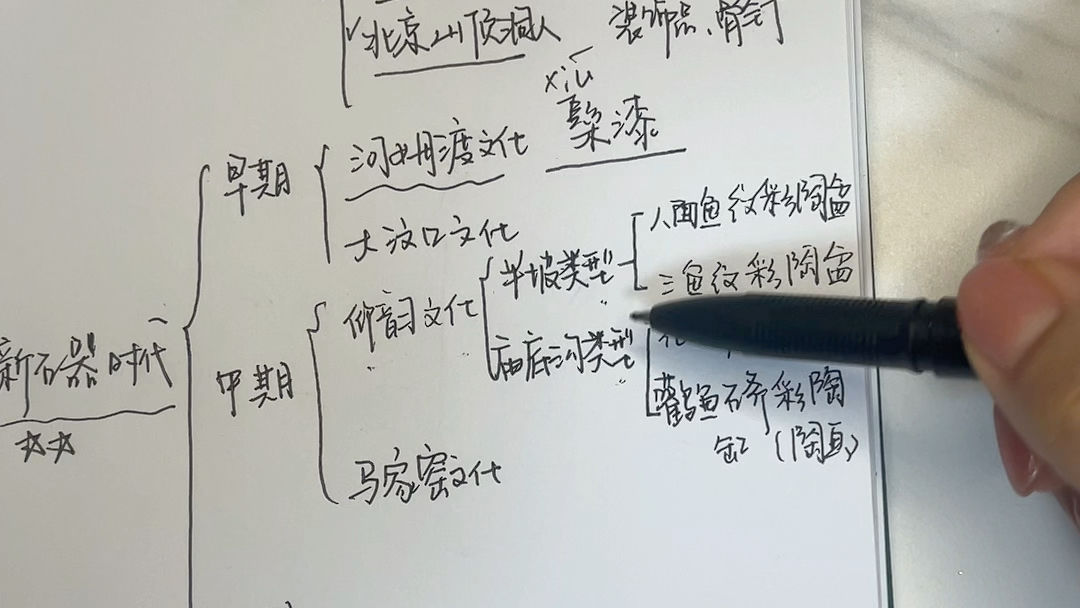 北京山顶洞人 装饰品、骨钉
xiū
髹漆
早期 河姆渡文化
大汶口文化
人面鱼纹彩陶盆
半坡类型 三鱼纹彩陶盆
仰韶文化
新石器时代
庙底沟类型
中期
鹳鱼石斧彩陶
缸（陶
马家窑文化